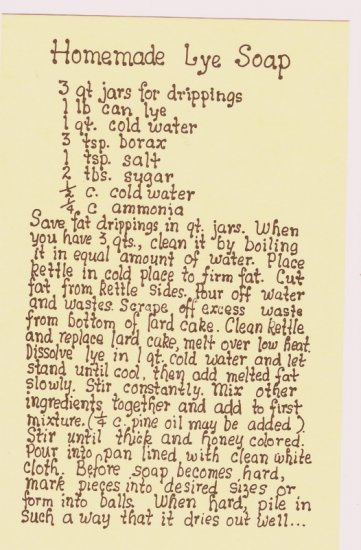 Homemade Lye Soap
3 qt jars for drippings
1 lb can lye
1 qt. cold water
3 tsp. borax
1 tsp. salt
2 tbs. sugar
½ c. cold water
¼ c ammonia
Save fat drippings in qt. jars. When
you have 3 qts., clean it by boiling
it in equal amount of water. Place
kettle in cold place to firm fat. Cut
fat from kettle sides. Pour off water
and wastes. Scrape off excess waste
from bottom of lard cake. Clean kettle
and replace lard cake, melt over low heat.
Dissolve lye in 1 qt. cold water and let
stand until cool, then add melted fat
slowly. Stir constantly. Mix other
ingredients together and add to first
mixture. (¼ c. pine oil may be added).
Stir until thick and honey colored.
Pour into pan lined with clean white
cloth. Before soap becomes hard,
mark pieces into desired sizes or
form into balls. When hard, pile in
such a way that it dries out well...